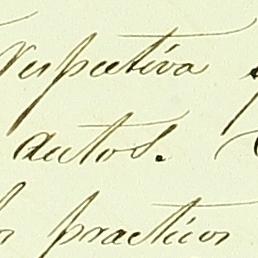 respectiva
autos.
practicos